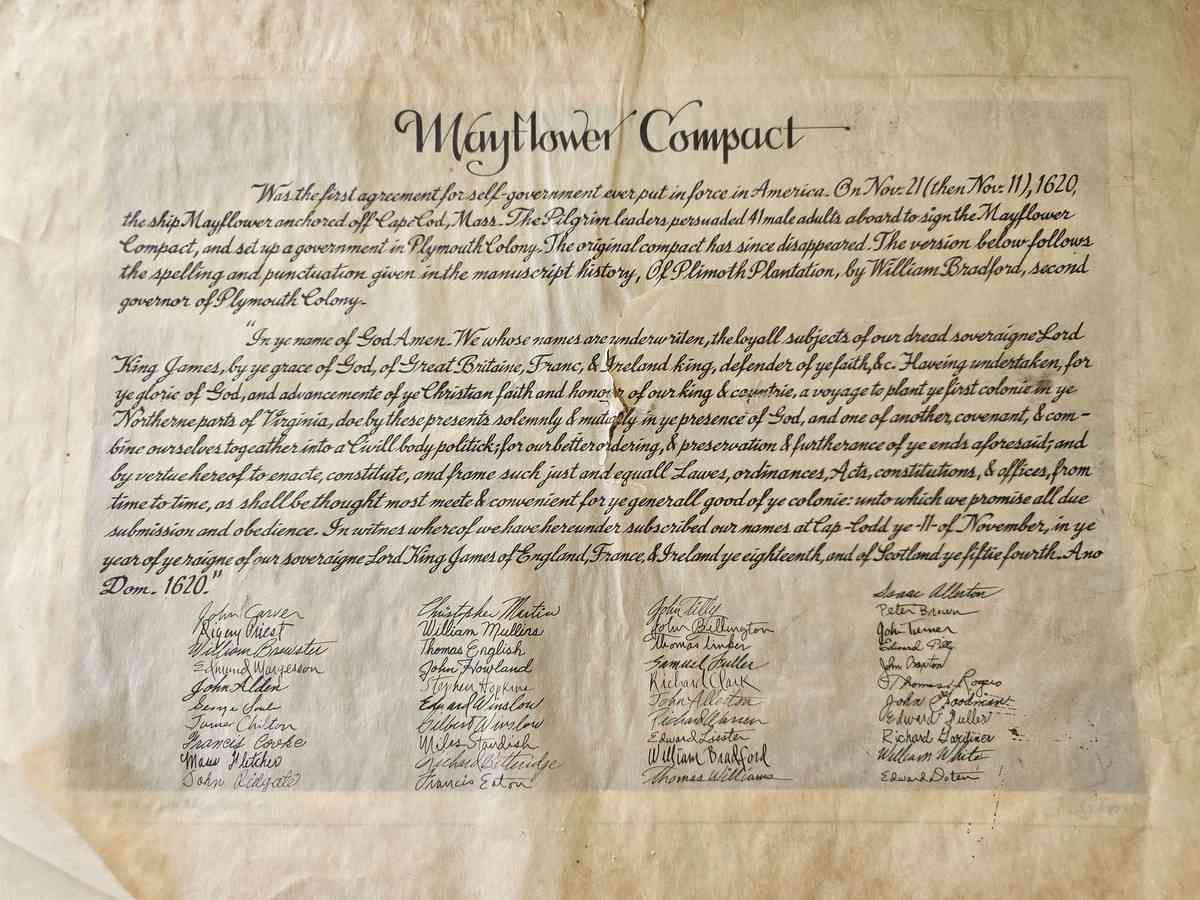 Mayflower Compact
Was the first agreement for self-government ever put in force in America. On Nov. 21 (then Nov. 11), 1620,
the ship Mayflower anchored off Cape Cod, Mass. The Pilgrim leaders persuaded 41 male adults aboard to sign the Mayflower
Compact, and set up a government in Plymouth Colony. The original compact has since disappeared. The version below follows
the spelling and punctuation given in the manuscript history, Of Plimoth Plantation, by William Bradford, second
governor of Plymouth Colony.
"In ye name of God Amen. We whose names are underwriten, the loyall subjects of our dread soveraigne Lord
King James, by ye grace of God, of Great Britaine, Franc, & Ireland king, defender of ye faith, &c. Haveing undertaken, for
ye glorie of God, and advancemente of ye Christian faith and honor of our king & countrie, a voyage to plant ye first colonie in ye
Northerne parts of Virginia, doe by these presents solemnly & mutualy in ye presence of God, and one of another, covenant, & com-
bine ourselves togeather into a Civill body politick; for our better ordering, & preservation & furtherance of ye ends aforesaid; and
by vertue hereof to enacte, constitute, and frame such just and equall Lawes, ordinances, Acts, constitutions, & offices, from
time to time, as shall be thought most meete & convenient for ye generall good of ye colonie: unto which we promise all due
submission and obedience. In witnes whereof we have hereunder subscribed our names at Cap-Codd ye -11- of November, in ye
year of ye raigne of our soveraigne Lord King James of England, France, & Ireland ye eighteenth, and of Scotland ye fiftie fourth. Ano
Dom. 1620."
John Carver
Digery Priest
William Brewster
Edmund Margesson
John Alden
George Soule
James Chilton
Francis Cooke
Moses Fletcher
John Ridgate
Christopher Martin
William Mullins
Thomas English
John Howland
Stephen Hopkins
Edward Winslow
Gilbert Winslow
Miles Standish
Richard Bitteridge
Francis Eaton
John Tilly
John Billington
Thomas Tinker
Samuel Fuller
Richard Clark
John Allerton
Richard Warren
Edward Liester
William Bradford
Thomas Williams
Isaac Allerton
Peter Brown
John Turner
Edward Tilly
John Craxton
Thomas Rogers
John Goodman
Edward Fuller
Richard Gardiner
William White
Edward Doten